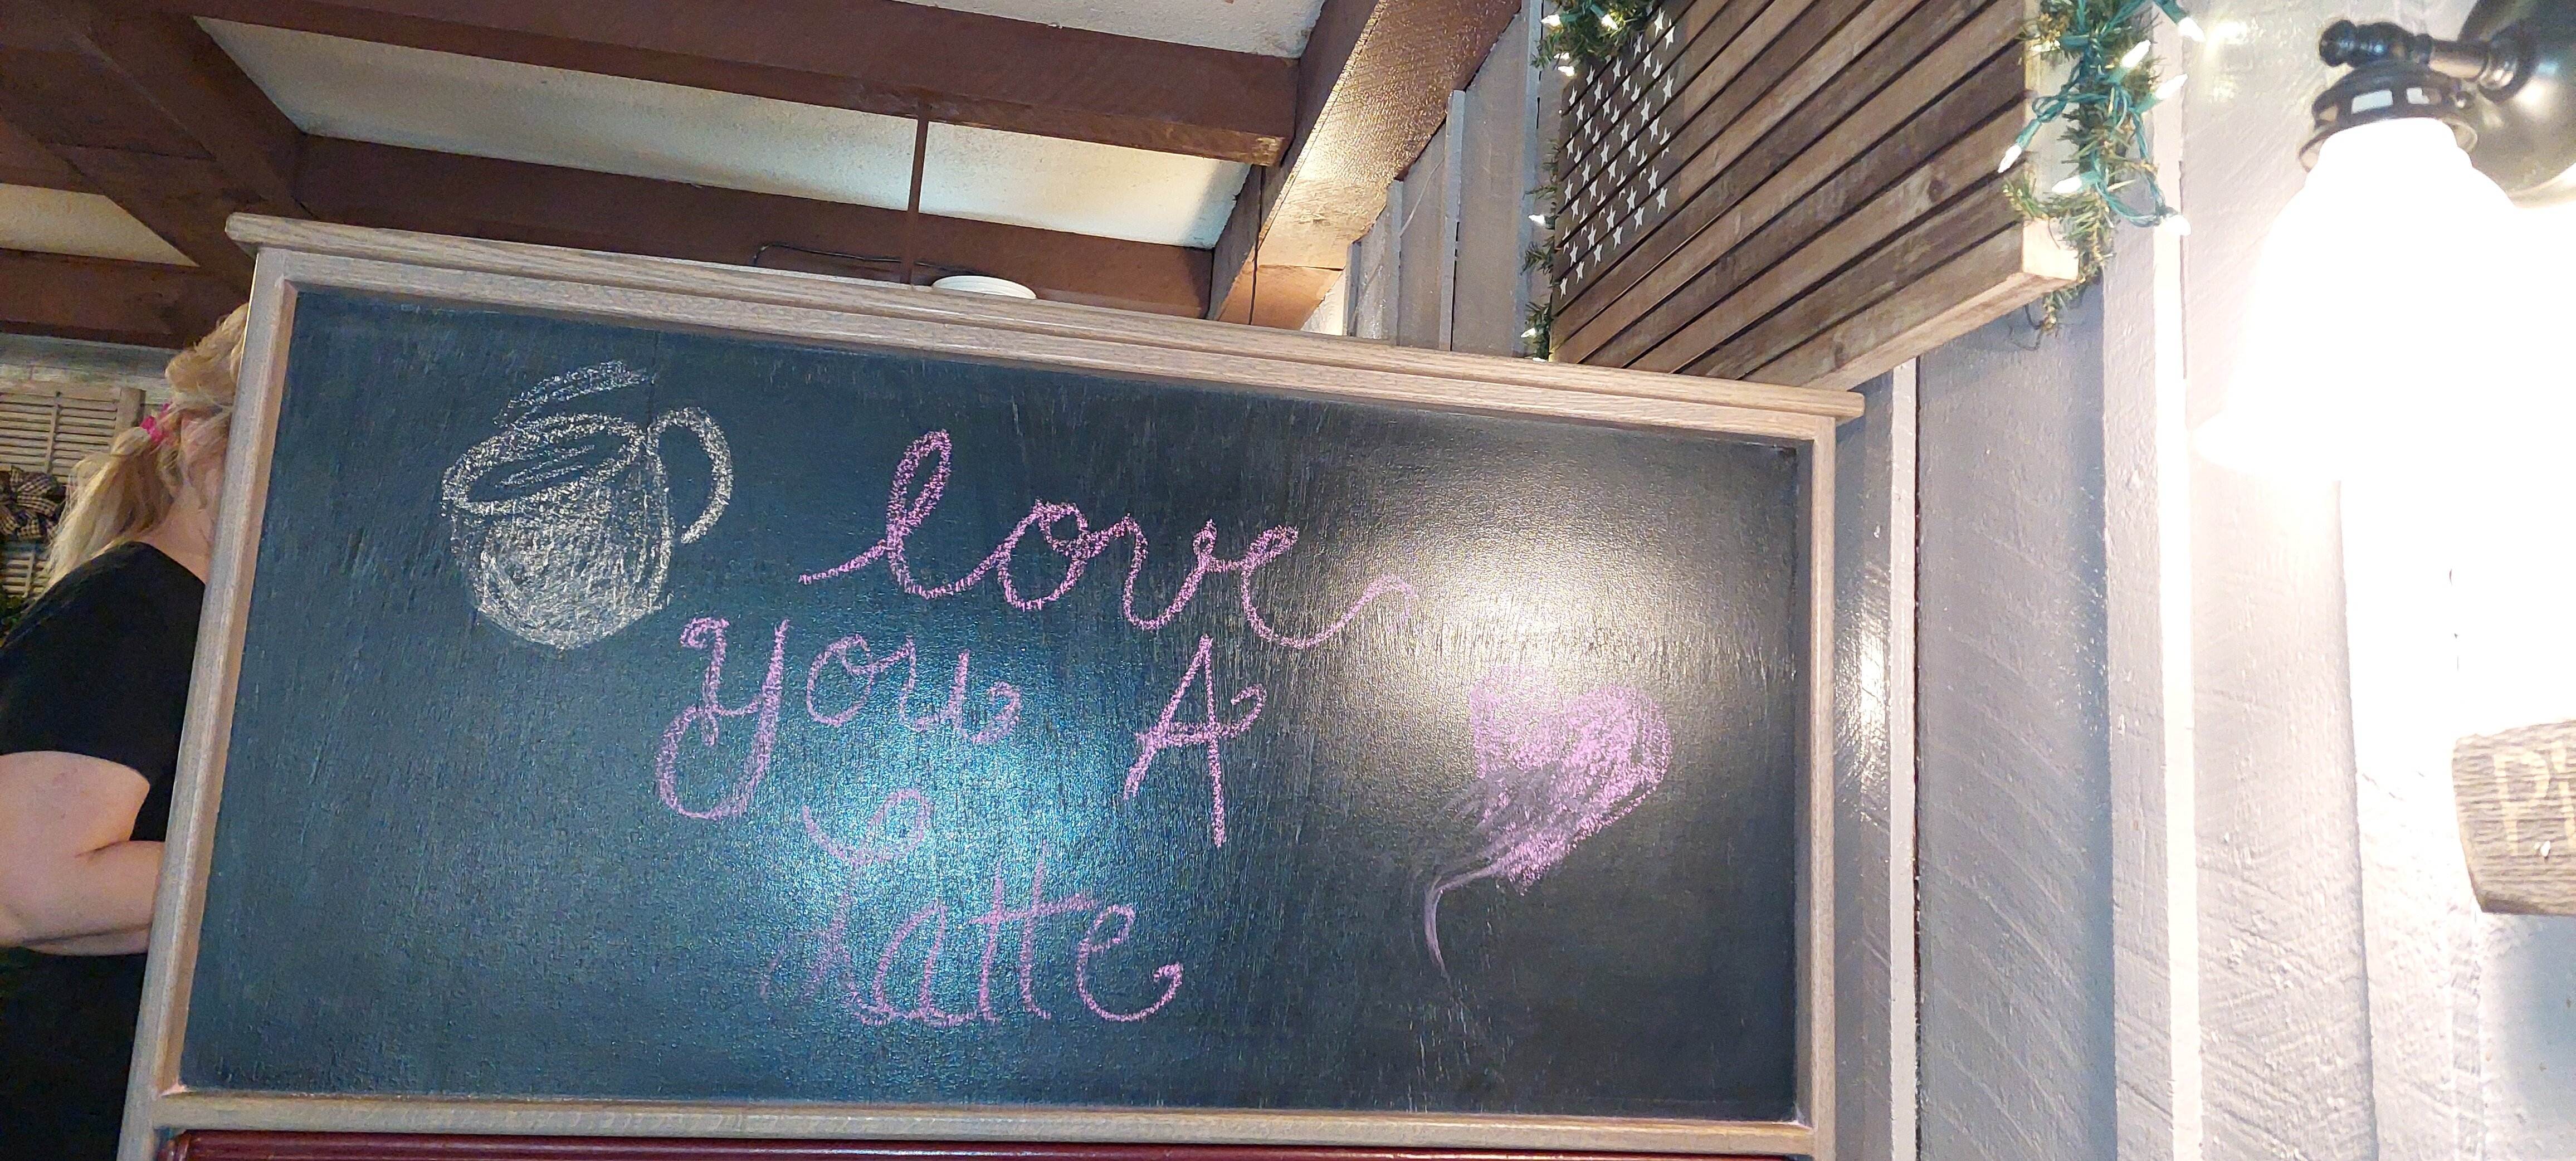 love
you A
Latte